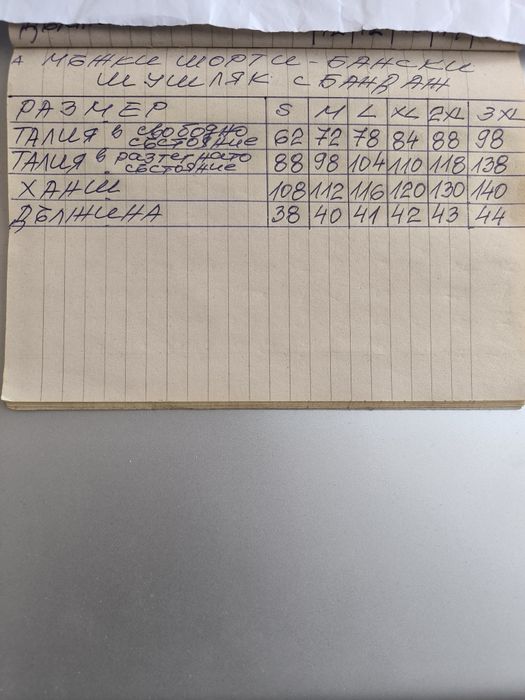 МЪЖКИ ШОРТИ - БАНСКИ
ШУШЛЯК С БАНДАЖ
РАЗМЕР S M L XL 2XL 3XL
ТАЛИЯ в свободно състояние 62 72 78 84 88 98
ТАЛИЯ в разтегнато състояние 88 98 104 110 118 138
ХАНШ 108 112 116 120 130 140
ДЪЛЖИНА 38 40 41 42 43 44